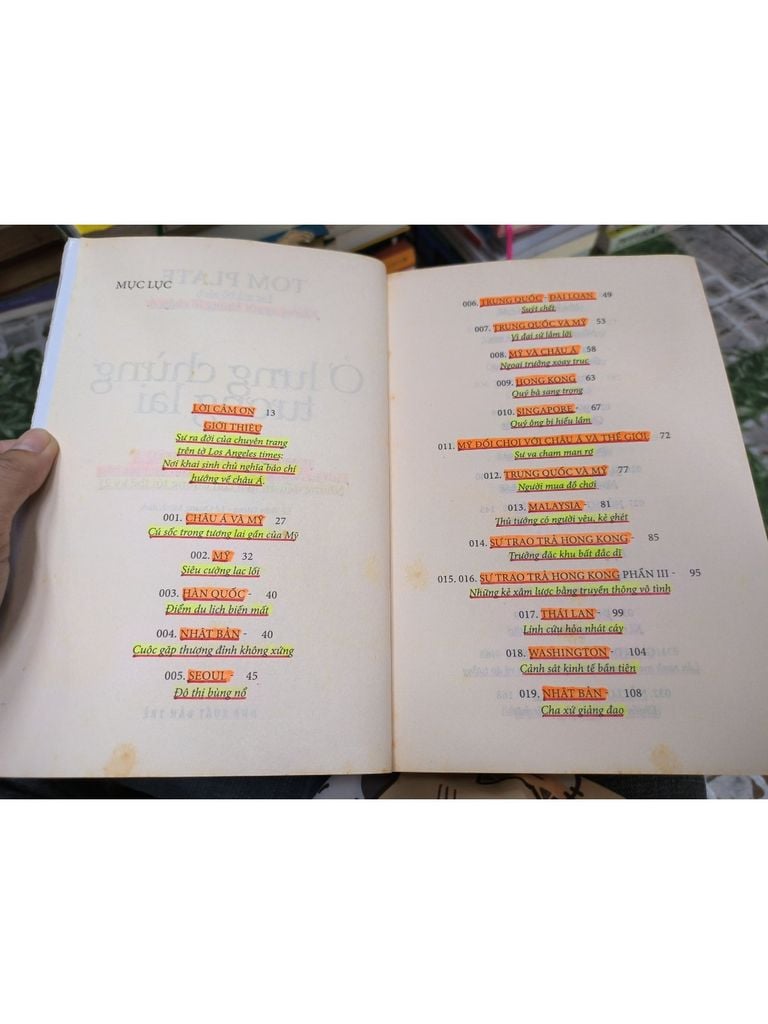 MỤC LỤC
LỜI CẢM ƠN 13
GIỚI THIỆU
Sự ra đời của chuyên trang
trên tờ Los Angeles times:
Nơi khai sinh chủ nghĩa báo chí
hướng về châu Á.
001. CHÂU Á VÀ MỸ 27
Cú sốc trong tương lai gần của Mỹ
002. MỸ 32
Siêu cường lạc lối
003. HÀN QUỐC - 40
Điểm du lịch biến mất
004. NHẬT BẢN - 40
Cuộc gặp thượng đỉnh không xứng
005. SEOUL - 45
Đô thị bùng nổ
006. TRUNG QUỐC - ĐÀI LOAN - 49
Suýt chết
007. TRUNG QUỐC VÀ MỸ - 53
Vị đại sứ lắm lời
008. MỸ VÀ CHÂU Á - 58
Ngoại trưởng xoay trục
009. HONG KONG - 63
Quý bà sang trọng
010. SINGAPORE - 67
Quý ông bị hiểu lầm
011. MỸ ĐỐI CHỌI VỚI CHÂU Á VÀ THẾ GIỚI - 72
Sự va chạm man rợ
012. TRUNG QUỐC VÀ MỸ - 77
Người mua đồ chơi
013. MALAYSIA - 81
Thủ tướng có người yêu, kẻ ghét
014. SỰ TRAO TRẢ HONG KONG - 85
Trưởng đặc khu bất đắc dĩ
015. 016. SỰ TRAO TRẢ HONG KONG PHẦN III - 95
Những kẻ xâm lược bằng truyền thông vô tình
017. THÁI LAN - 99
Lính cứu hỏa nhát cáy
018. WASHINGTON - 104
Cảnh sát kinh tế bần tiện
019. NHẬT BẢN - 108
Cha xứ giảng đạo
TOM PLATE
Ở lưng chừng
tương lai